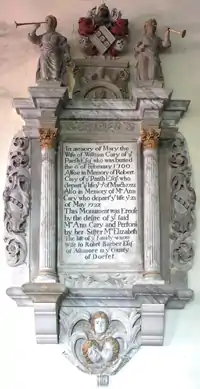 In memory of Mary the
Wife of William Cary of ys
Parish Esqr who was buried
the 6th of february 1700.
Allso in Memory of Robert
Cary of ys Parish Esqr who
depart'd ys life ye of
Allso in Memory of Mrs Ann
Cary who depart'd ys life ye of
of May 1728
This Monument was Erected
by the desire of ye said
Mrs Ann Cary and Perform'd
by her Sister Mrs Elizabeth
The last of ys family whom
Wife to Robert Barber Esqr
of Ashmore in ye County
of Dorset.